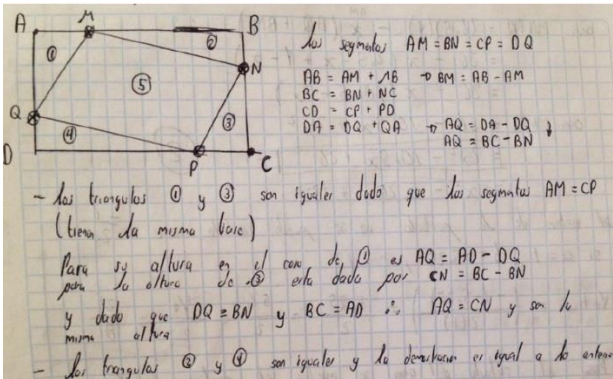 A M B
① ②
los segmentos AM = BN = CP = DQ
N
AB = AM + MB → BM = AB - AM
⑤
BC = BN + NC
Q
③
CD = CP + PD
④
DA = DQ + QA → AQ = DA - DQ
D P C
AQ = BC - BN
- los triangulos ① y ③ son iguales dado que los segmentos AM = CP
(tienen la misma base)
Para su altura en el caso de ① es AQ = AD - DQ
para la altura de ③ esta dada por CN = BC - BN
y dado que DQ = BN y BC = AD ∴ AQ = CN y son la
misma altura
- los triangulos ② y ④ son iguales y la demostracion es igual a lo